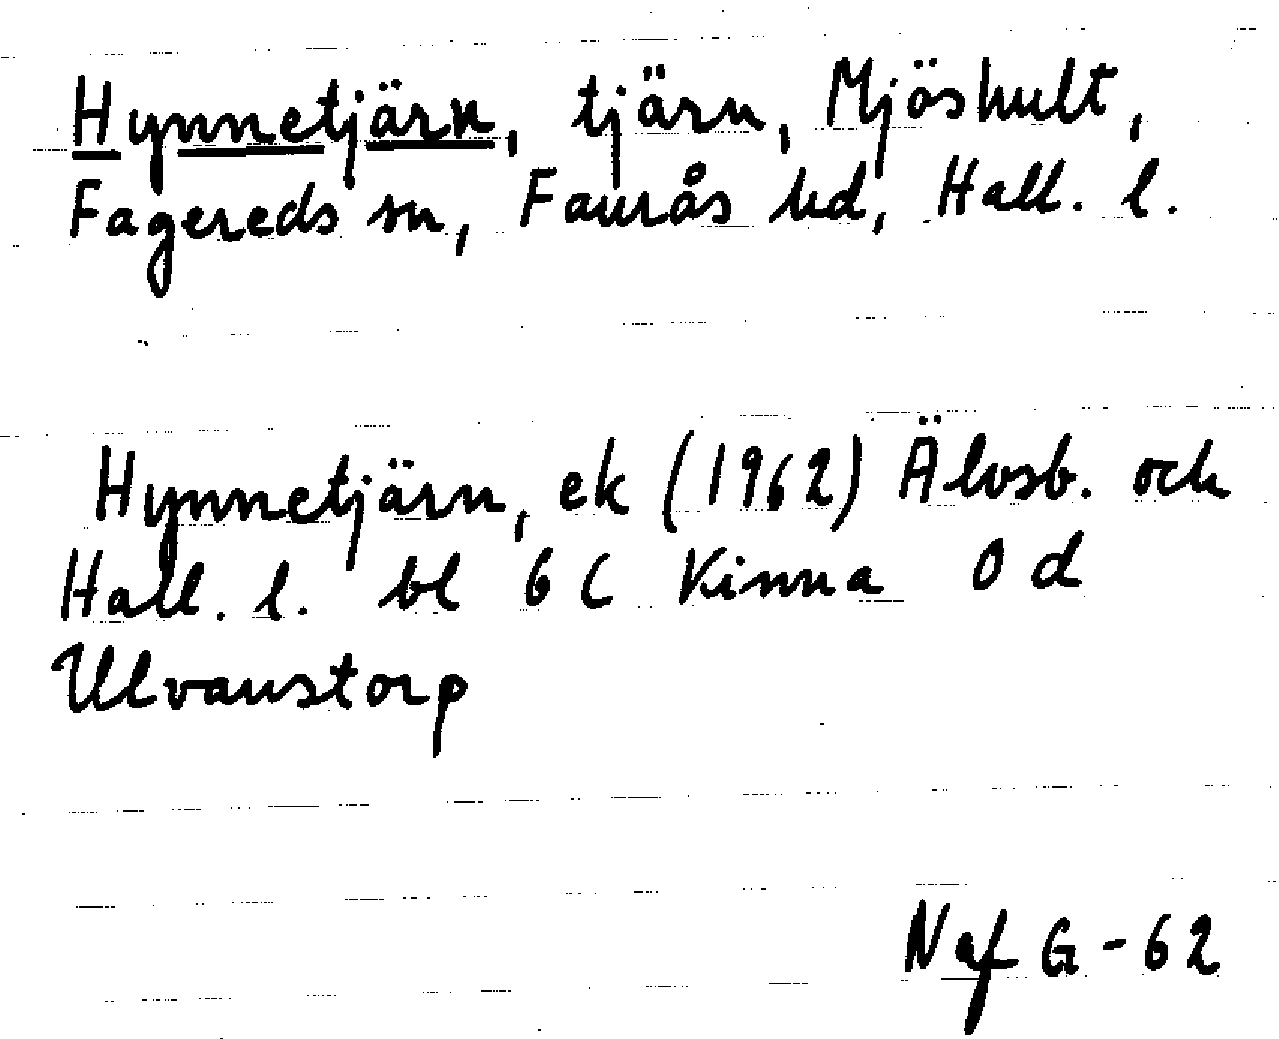 Hynnetjärn, tjärn, Mjöshult,
Fagereds sn, Faurås hd, Hall. l.
Hynnetjärn, ek (1962) Älvsb. och
Hall. l. bl 6 C Kinna 0 d
Ulvanstorp
Naf G-62